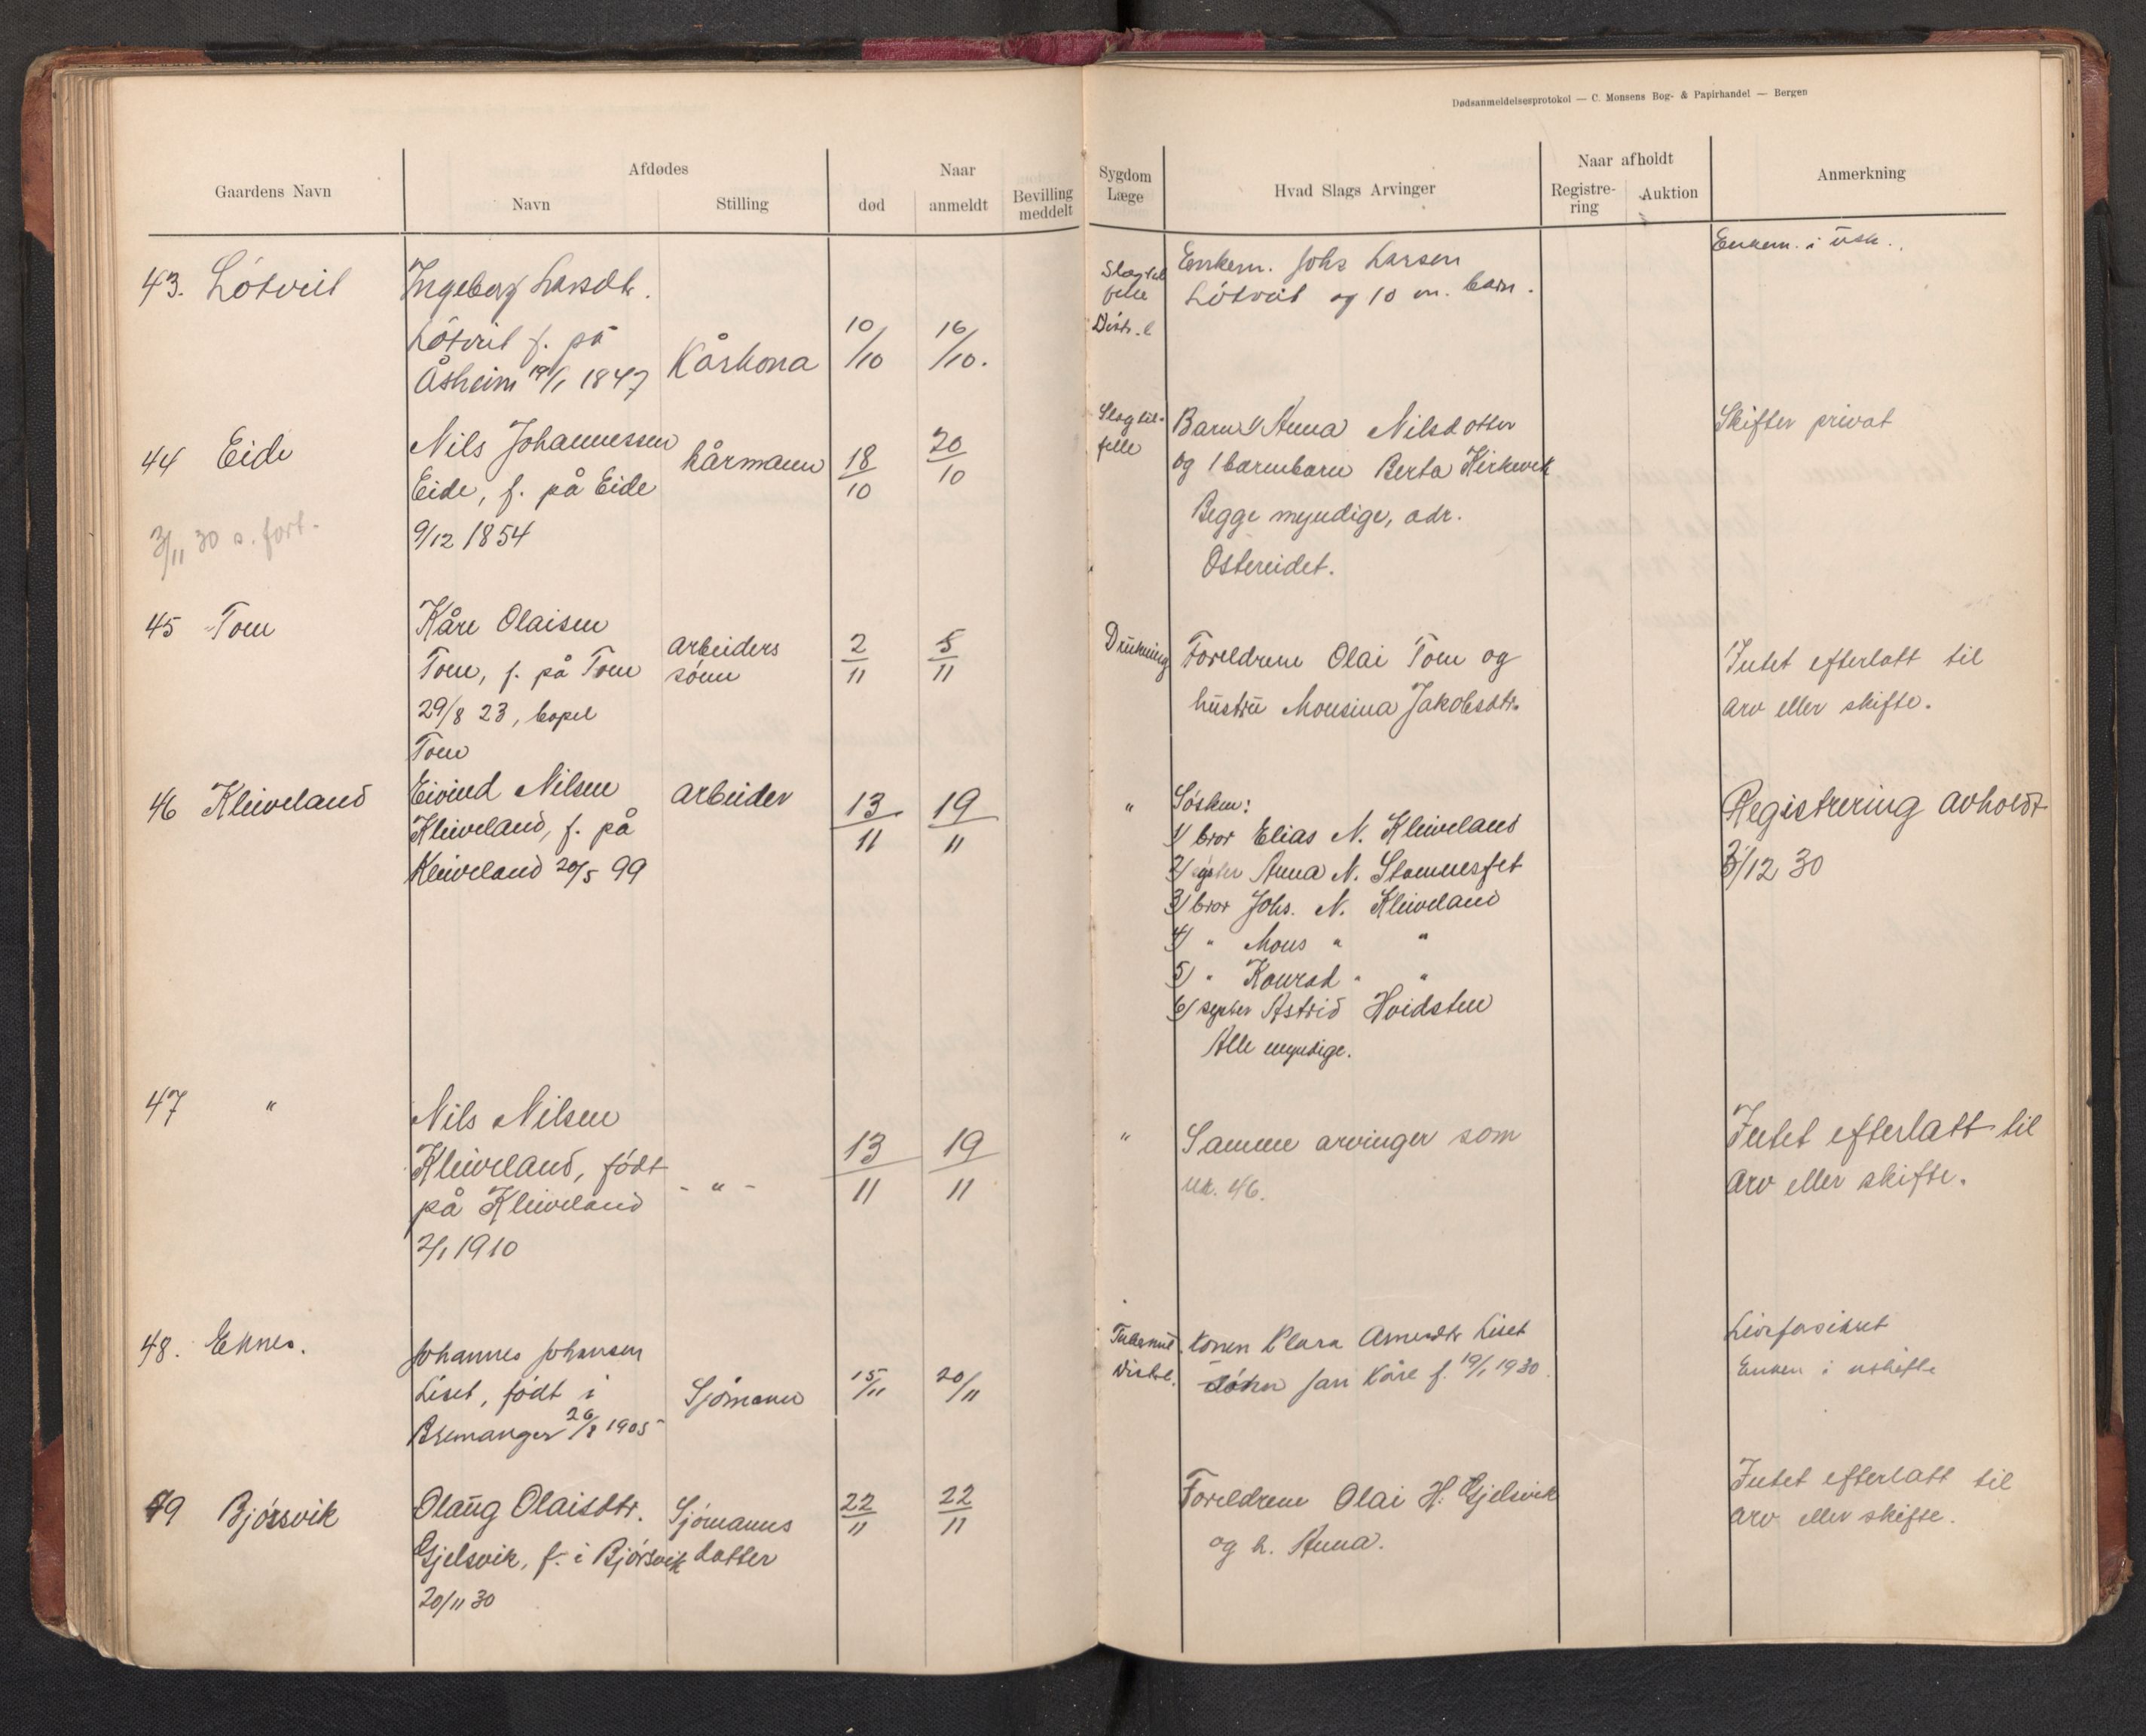 Dødsanmeldelsesprotokol — C. Monsens Bog- & Papirhandel — Bergen
Gaardens Navn
Afdødes
Navn
Stilling
Naar
død
anmeldt
Bevilling meddelt
Sygdom Læge
Hvad Slags Arvinger
Naar afholdt
Registre-
ring
Auktion
Anmerkning
43. Lótveit
Ingeborg Larsdtr.
Lótveit f. på
Åsheim 19/1 1847
Kårkona
10/10
16/10.
Slagtil
felle
Distr.l
Enkem. Johs Larsen
Lótveit og 10 m. barn.
Enkem. i usk.
44 Eide
3/11 30 s. fort.
Nils Johannessen
Eide, f. på Eide
9/12 1854
Kårmann
18/10
20/10
Slagtil-
felle
Barn 1/ Anna Nilsdotter
og 1 barnebarn Berta Kirkevik
Begge myndige, adr.
Ostereidet.
Skifter privat
45 Tom
Kåre Olaisen
Tom, f. på Tom
29/8 23, bopel
Tom
arbeiders
sónn
2/11
5/11
Drukning
Foreldrene Olai Tom og
hustru Monsina Jakobsdtr.
Intet efterlatt til
arv eller skifte.
46 Kleiveland
Eivind Nilsen
Kleiveland, f. på
Kleiveland 20/5 99
arbeider
13/11
19/11
"
Sósken:
1/ bror Elias N. Kleiveland
2/ syster Anna N. Stamnesfet
3/ bror Johs. N. Kleiveland
4/ " Mons " "
5/ " Konrad " "
6/ syster Astrid Hvidsten
Alle myndige.
Registrering avholdt
3/12 30
47 "
Nils Nilsen
Kleiveland, fódt
på Kleiveland
2/1 1910
- " -
13/11
19/11
"
Samme arvinger som
nr. 46.
Intet efterlatt til
arv eller skifte.
48. Eknes.
Johannes Johansen
Liset, fódt i
Bremanger 26/8 1905
Sjómann
15/11
20/11
Tuberkul.
Distr.l.
Konen Klara Arnesdtr Liset
Són Jan Kåre f. 19/1 1930.
Livsforsikret
Enken i uskifte
49 Bjórsvik
Olaug Olaisdtr.
Gjelsvik, f. i Bjórsvik
20/11 30
Sjómanns
datter
22/11
22/11
Foreldrene Olai H. Gjelsvik
og h. Anna.
Intet efterlatt til
arv eller skifte.